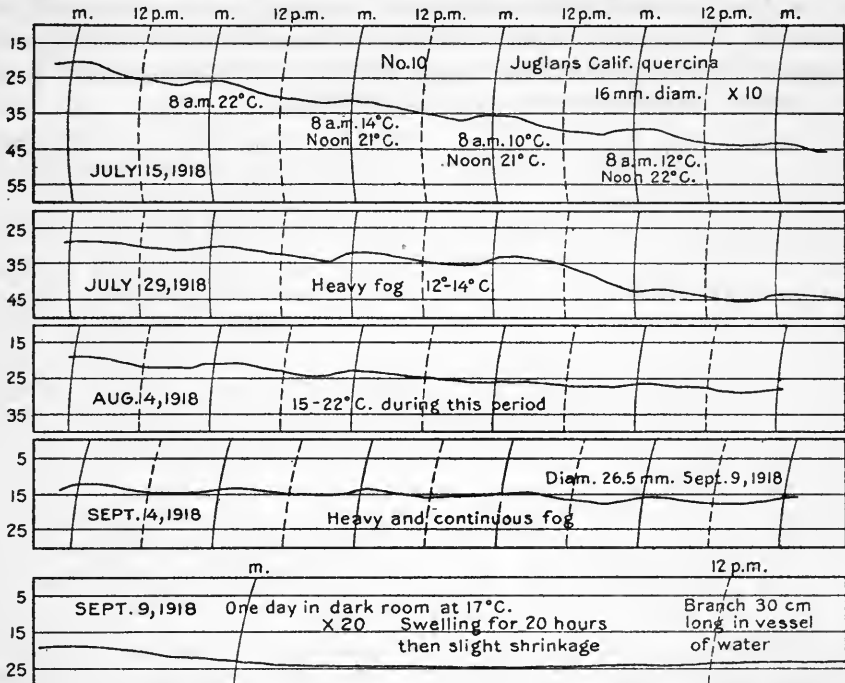 m. 12 p.m. m. 12 p.m. m. 12 p.m. m. 12 p.m. m. 12 p.m. m.
15
25
35
45
55
No.10 Juglans Calif. quercina
16 mm. diam. X 10
8 a.m. 22°C.
8 a.m. 14°C.
Noon 21°C.
8 a.m. 10°C.
Noon 21°C.
8 a.m. 12°C.
Noon 22°C.
JULY 15, 1918
25
35
45
JULY 29, 1918 Heavy fog 12°-14°C
15
25
35
AUG. 14, 1918 15-22°C. during this period
5
15
25
Diam. 26.5 mm. Sept. 9, 1918
SEPT. 14, 1918 Heavy and continuous fog
m. 12 p.m.
5
15
25
SEPT. 9, 1918 One day in dark room at 17°C.
X 20 Swelling for 20 hours
then slight shrinkage
Branch 30 cm
long in vessel
of water